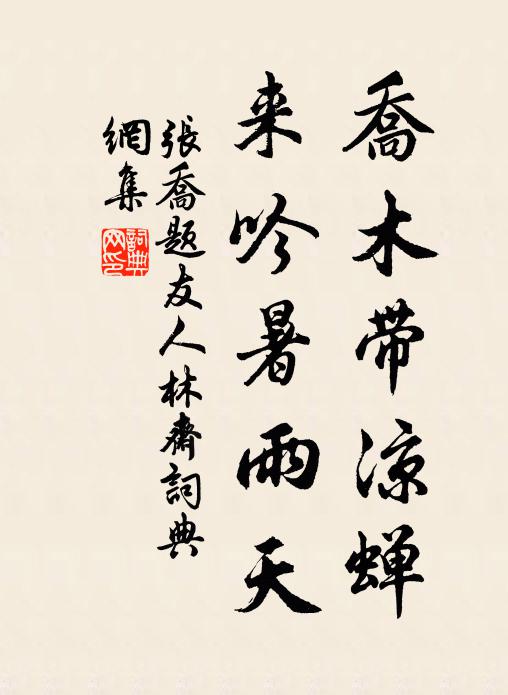 喬木帶涼蝉
来吟暑雨天
張喬题友人林齋詞典
網集
詞典网印